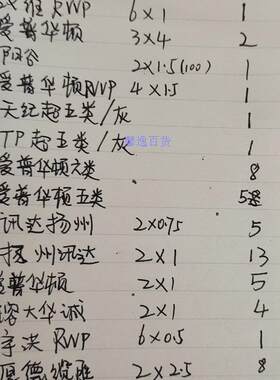 双绞RVVP 6×1 1
爱普华顿 3×4 2
阳谷 2×1.5(100) 1
爱普华顿RVVP 4×1.5 1
天纪超五类/灰 1
TP超五类/灰 1
爱普华顿六类 8
爱普华顿五类 58
讯达扬州 2×0.75 5
扬州讯达 2×1 13
爱普华顿 2×1 5
大华诚 2×1 4
洪RVVP 6×0.5 1
德缆胜 2×2.5 8
馨逸百货